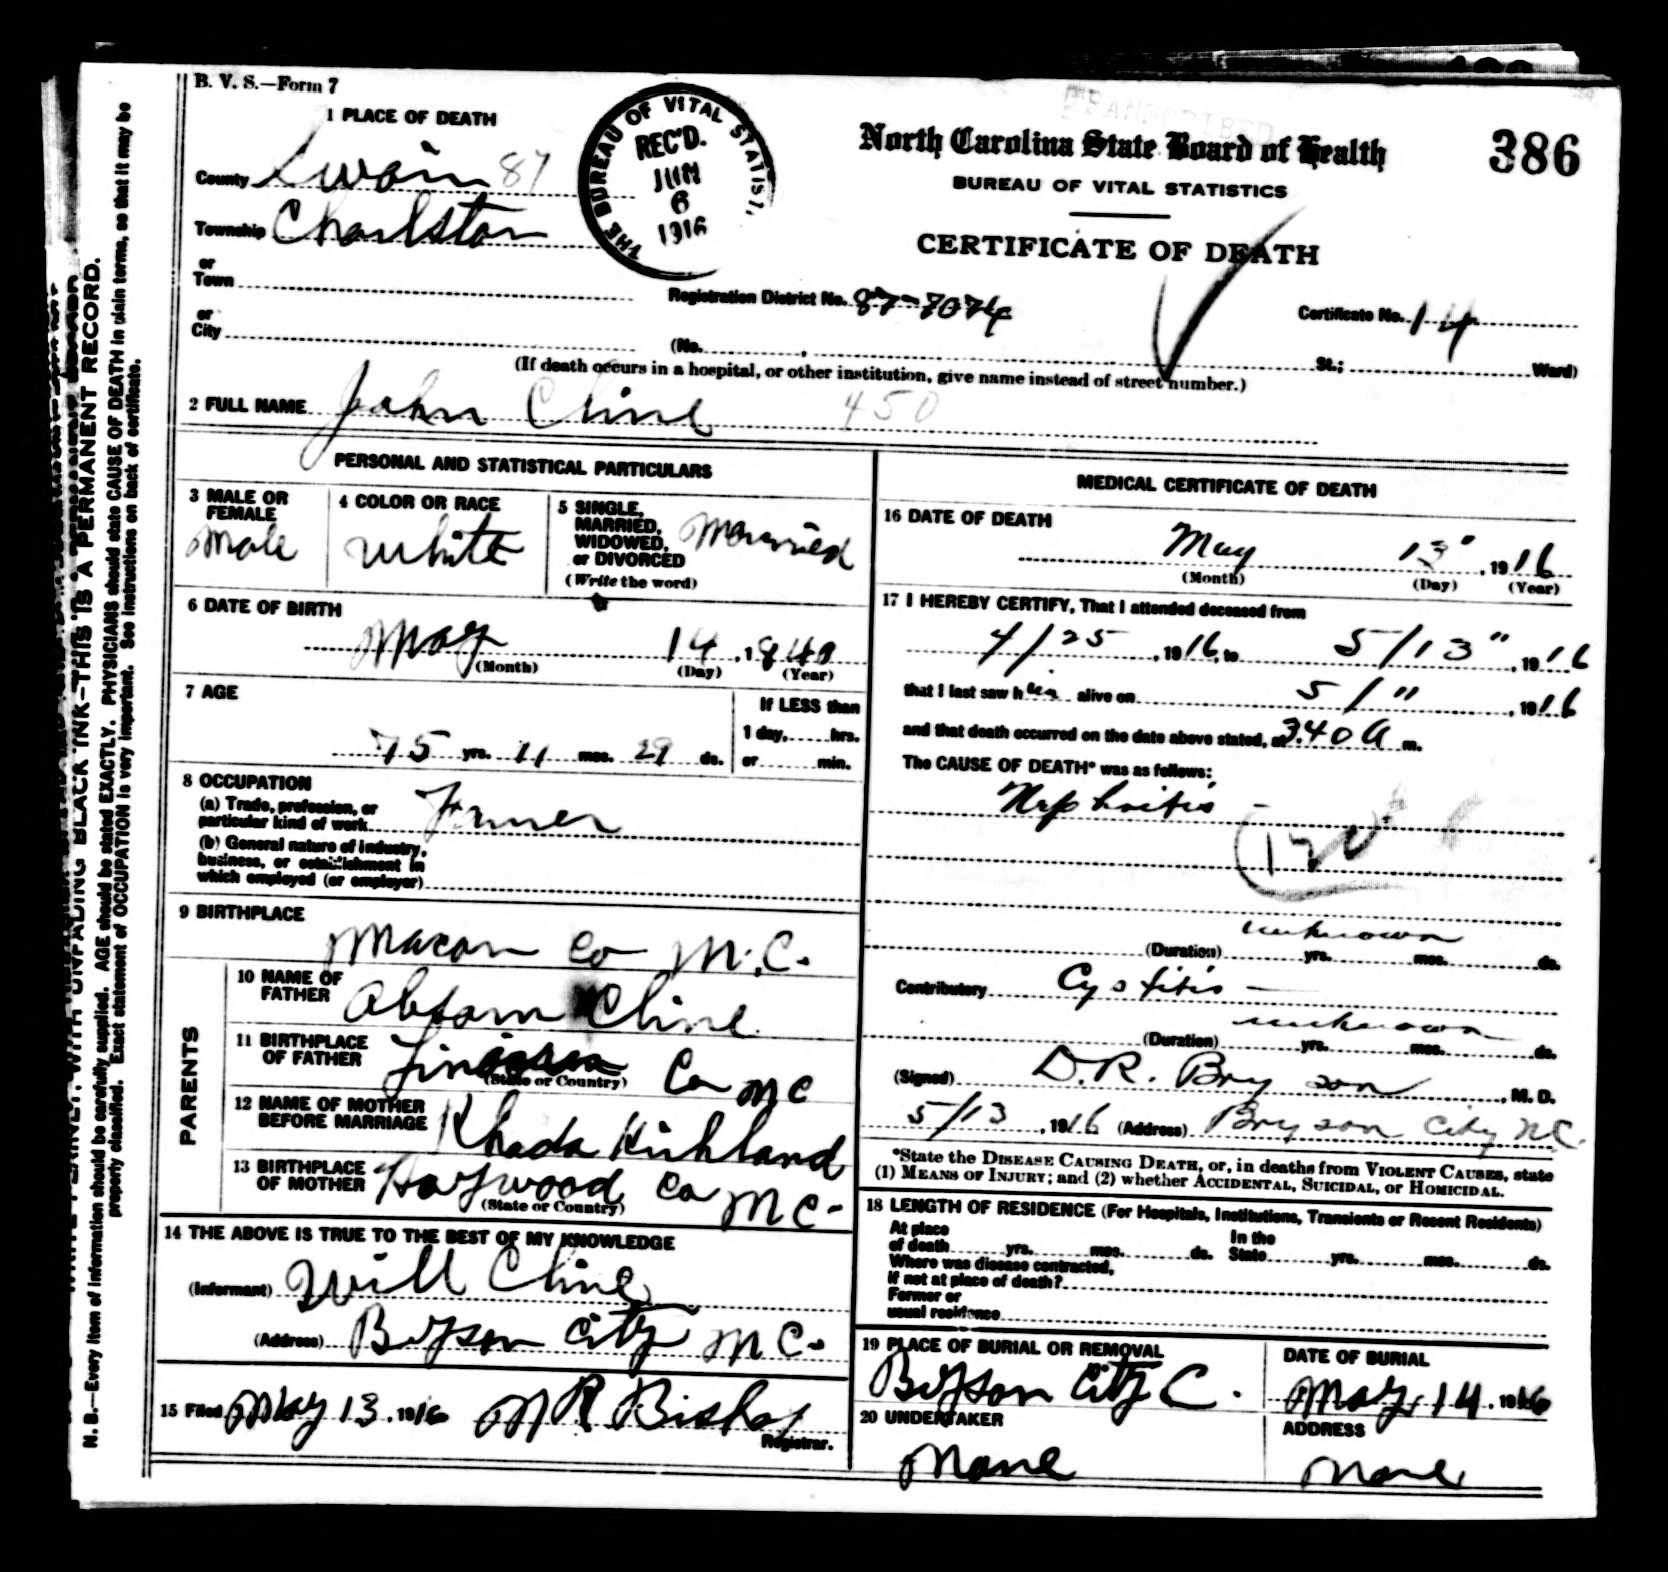 386
B. V. S.—Form 7
1 PLACE OF DEATH
County Swain 87
Township Charlston
or
Town
or
City
THE BUREAU OF VITAL STATIST.
REC'D.
JUN
6
1916
North Carolina State Board of Health
BUREAU OF VITAL STATISTICS
CERTIFICATE OF DEATH
Registration District No. 87-7074
Certificate No. 14
(No. , St.; Ward)
(If death occurs in a hospital, or other institution, give name instead of street number.)
2 FULL NAME John Cline 450
PERSONAL AND STATISTICAL PARTICULARS
3 MALE OR FEMALE
Male
4 COLOR OR RACE
White
5 SINGLE, MARRIED, WIDOWED, or DIVORCED
(Write the word)
Married
6 DATE OF BIRTH
May 14, 1840
(Month) (Day) (Year)
7 AGE
75 yrs. 11 mos. 29 ds.
If LESS than
1 day, hrs.
or min.
8 OCCUPATION
(a) Trade, profession, or
particular kind of work Farmer
(b) General nature of industry,
business, or establishment in
which employed (or employer)
9 BIRTHPLACE
Macon Co N.C.
PARENTS
10 NAME OF FATHER
Absam Cline
11 BIRTHPLACE OF FATHER
Co NC
(State or Country)
12 NAME OF MOTHER BEFORE MARRIAGE
Rhoda Kirkland
13 BIRTHPLACE OF MOTHER
Haywood Co N C-
(State or Country)
14 THE ABOVE IS TRUE TO THE BEST OF MY KNOWLEDGE
(Informant) Will Cline
(Address) Bryson City N C-
15 Filed May 13, 1916 Bishop
Registrar.
MEDICAL CERTIFICATE OF DEATH
16 DATE OF DEATH
May 13", 1916
(Month) (Day) (Year)
17 I HEREBY CERTIFY, That I attended deceased from
4/25, 1916, to 5/13", 1916
that I last saw him alive on 5/11, 1916
and that death occurred on the date above stated, at 3.40 A m.
The CAUSE OF DEATH* was as follows:
Nephritis -
120
unknown
(Duration) yrs. mos. ds.
Contributory Cystitis —
unknown
(Duration) yrs. mos. ds.
(Signed) D.R. Bryson, M. D.
5/13, 1916 (Address) Bryson City N.C.
*State the DISEASE CAUSING DEATH, or, in deaths from VIOLENT CAUSES, state
(1) MEANS OF INJURY; and (2) whether ACCIDENTAL, SUICIDAL, or HOMICIDAL.
18 LENGTH OF RESIDENCE (For Hospitals, Institutions, Transients or Recent Residents)
At place of death yrs. mos. ds. In the State yrs. mos. ds.
Where was disease contracted,
If not at place of death?
Former or
usual residence
19 PLACE OF BURIAL OR REMOVAL
Bryson City C.
DATE OF BURIAL
May 14, 1916
20 UNDERTAKER
None
ADDRESS
None
N. B.—Every item of information should be carefully supplied. AGE should be stated EXACTLY. PHYSICIANS should state CAUSE OF DEATH in plain terms, so that it may be
properly classified. Exact statement of OCCUPATION is very important. See instructions on back of certificate.
WRITE PLAINLY, WITH UNFADING BLACK INK—THIS IS A PERMANENT RECORD.